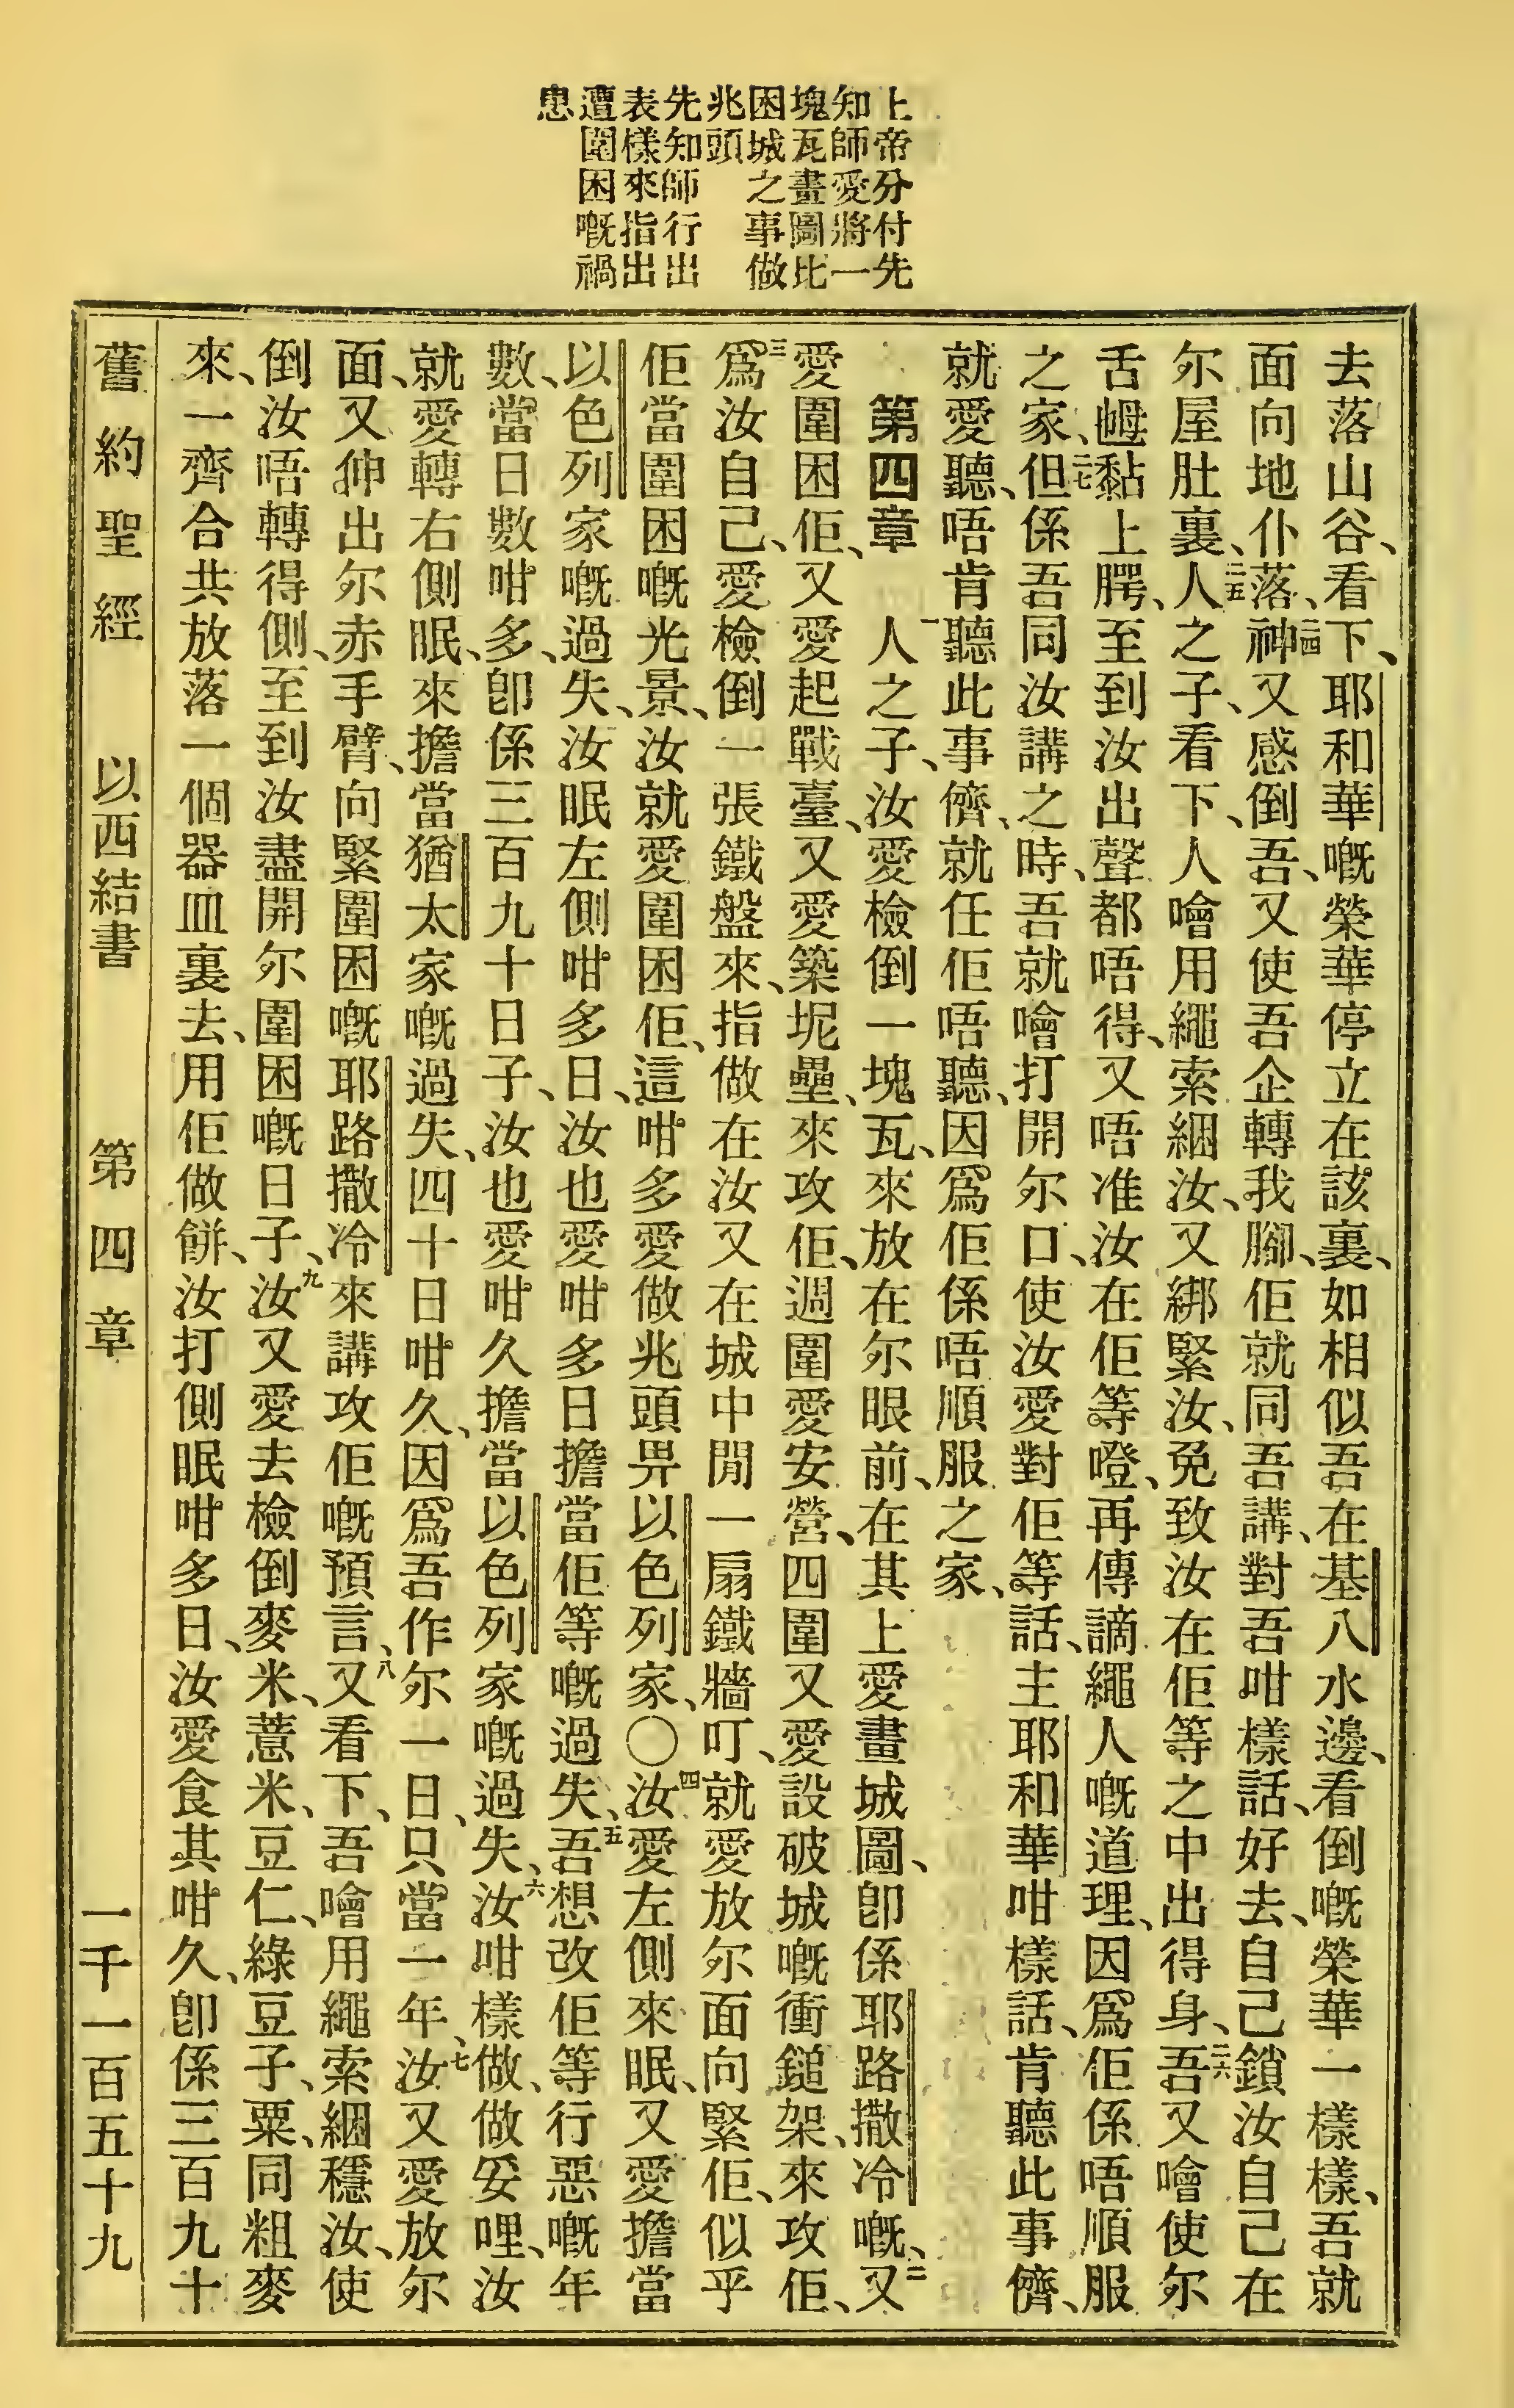 上帝分付先
知師愛將一
塊瓦畫圖比
困城之事做
兆頭
先知師行出
表樣來指出
遭圍困嘅禍
患
去落山谷、看下、耶和華嘅榮華停立在該裏、如相似吾在基八水邊、看倒嘅榮華一樣樣、吾就
面向地仆落、二四神又感倒吾、又使吾企轉我腳、佢就同吾講、對吾咁樣話、好去、自己鎖汝自己在
尔屋肚裏、二五人之子、看下、人噲用繩索綑汝、又綁緊汝、免致汝在佢等之中出得身、二六吾又噲使尔
舌𡳞黏上腭、至到汝出聲都唔得、又唔准汝在佢等嶝、再傳謫繩人嘅道理、因爲佢係唔順服
之家、二七但係吾同汝講之時、吾就噲打開尔口、使汝愛對佢等話、主耶和華咁樣話、肯聽此事儕、
就愛聽、唔肯聽此事儕、就任佢唔聽、因爲佢係唔順服之家、
第四章 一人之子、汝愛檢倒一塊瓦、來放在尔眼前、在其上愛畫城圖、卽係耶路撒冷嘅、二又
愛圍困佢、又愛起戰臺、又愛築坭壘、來攻佢、週圍愛安營、四圍又愛設破城嘅衝鎚架、來攻佢、
三爲汝自己、愛檢倒一張鐵盤來、指做在汝又在城中閒一扇鐵牆叮、就愛放尔面向緊佢、似乎
佢當圍困嘅光景、汝就愛圍困佢、這咁多愛做兆頭畀以色列家、〇四汝愛左側來眠、又愛擔當
以色列家嘅過失、汝眠左側咁多日、汝也愛咁多日擔當佢等嘅過失、五吾想改佢等行惡嘅年
數、當日數咁多、卽係三百九十日子、汝也愛咁久擔當以色列家嘅過失、六汝咁樣做、做妥哩、汝
就愛轉右側眠、來擔當猶太家嘅過失、四十日咁久、因爲吾作尔一日、只當一年、七汝又愛放尔
面、又伸出尔赤手臂、向緊圍困嘅耶路撒冷來講攻佢嘅預言、八又看下、吾噲用繩索綑穩汝、使
倒汝唔轉得側、至到汝盡開尔圍困嘅日子、九汝又愛去檢倒麥米、薏米、豆仁、綠豆子、粟、同粗麥
來、一齊合共放落一個器皿裏去、用佢做餅、汝打側眠咁多日、汝愛食其咁久、卽係三百九十
舊約聖經 以西結書 第四章 一千一百五十九